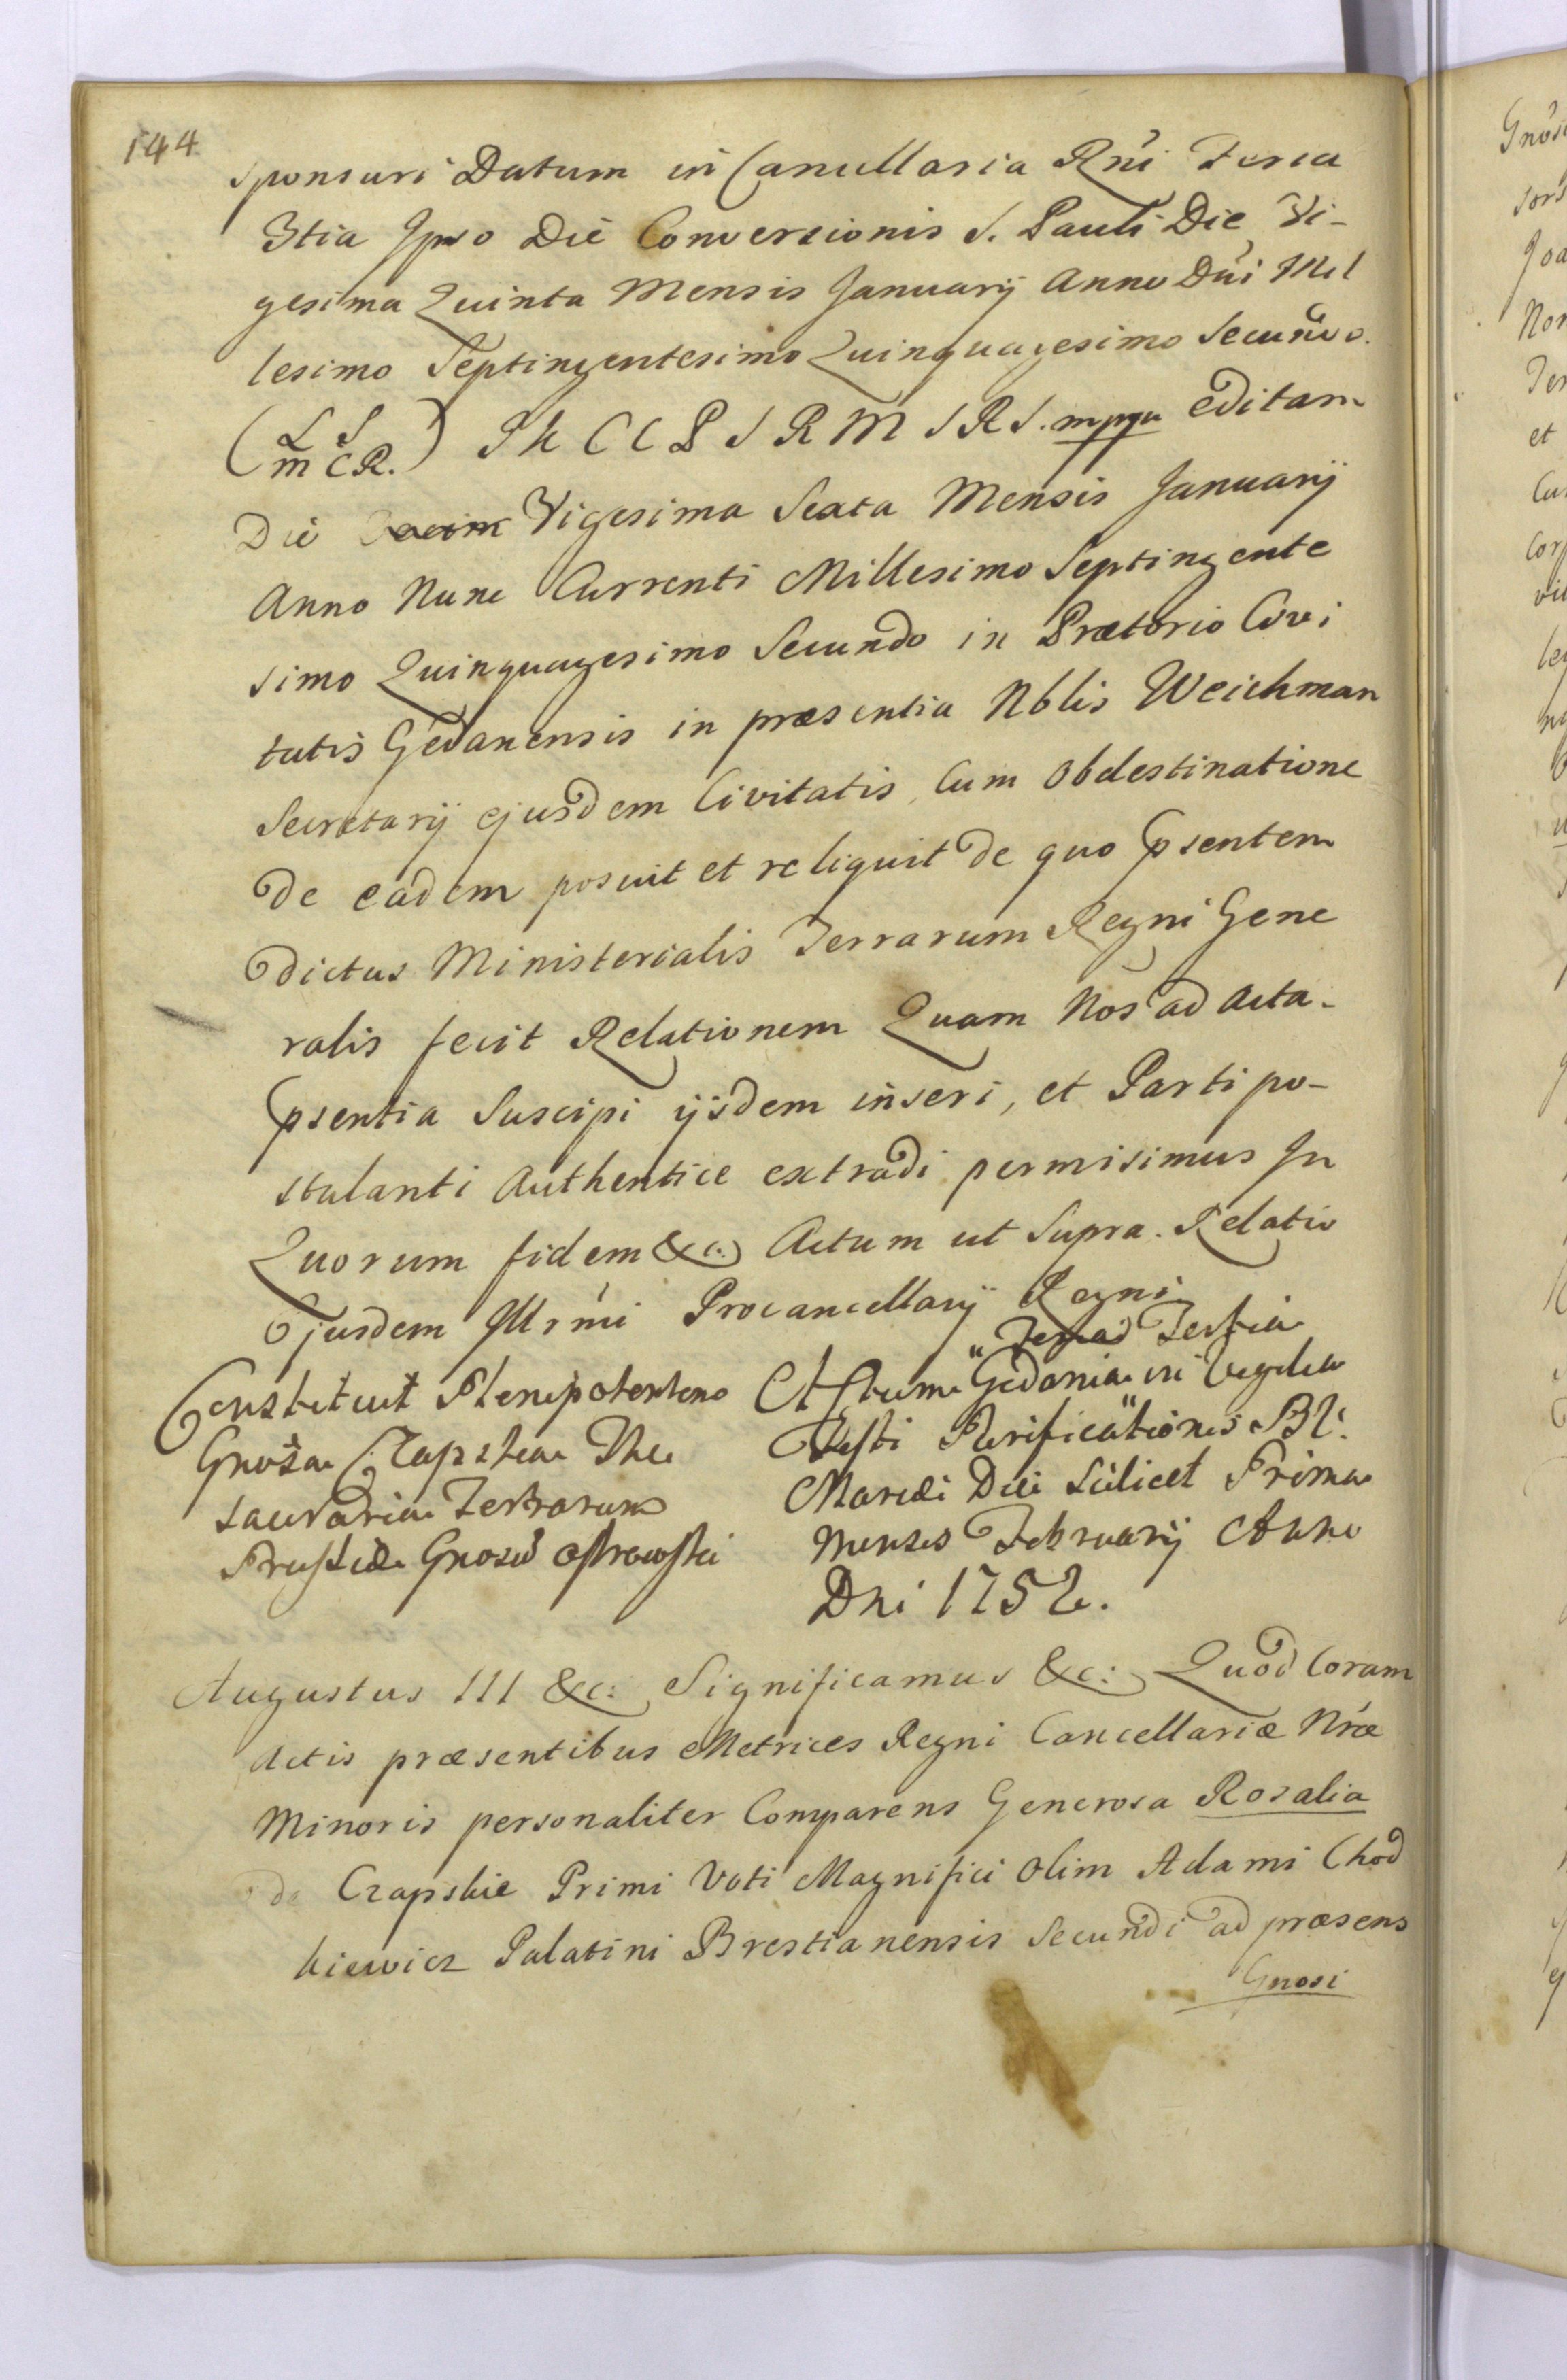 144
sponsuri Datum in Cancellaria Rni Feria
3tia Ipso Die Conversionis S. Pauli Die Vi-
gesima Quinta Mensis Januarij Anno Dni Mil
lesimo Septingentesimo Quinquagesimo Secundo.
(L S m C R.) S K C C P S R M S R S. mppa editam
Die Vigesima Sexta Mensis Januarij
Anno Nunc Currenti Millesimo Septingente
simo Quinquagesimo Secundo in Prætorio Civi
tatis Gedanensis in præsentia Nblis Weichman
Secretarij ejusdem Civitatis, Cum Obdestinatione
de eadem posuit et reliquit de quo psentem
dictus Ministerialis Terrarum Regni Gene
ralis fecit Relationem Quam Nos ad Acta
psentia Suscipi ijsdem inseri, et Parti po-
stulanti Authentice extradi permisimus In
Quorum fidem &c: Actum ut Supra. Relatio
Ejusdem Illrmi Procancellarij Regni
Constituit Plenipotentem
Gnosa Czapska The
sauraria Terrarum
Prussiæ Gnosū Ostrowski
Feria Tertia
Actum Gedaniæ in Vigilia
Festi Purificationis BV.
Mariæ Die Scilicet Prima
Mensis Februarij Anno
Dni 1752.
Augustus III &c: Significamus &c: Quod Coram
Actis præsentibus Metrices Regni Cancellariæ Nræ
Minoris personaliter Comparens Generosa Rosalia
de Czapskie Primi Voti Magnifici olim Adami Chod
kiewicz Palatini Brestianensis Secundi ad præsens
Gnosi